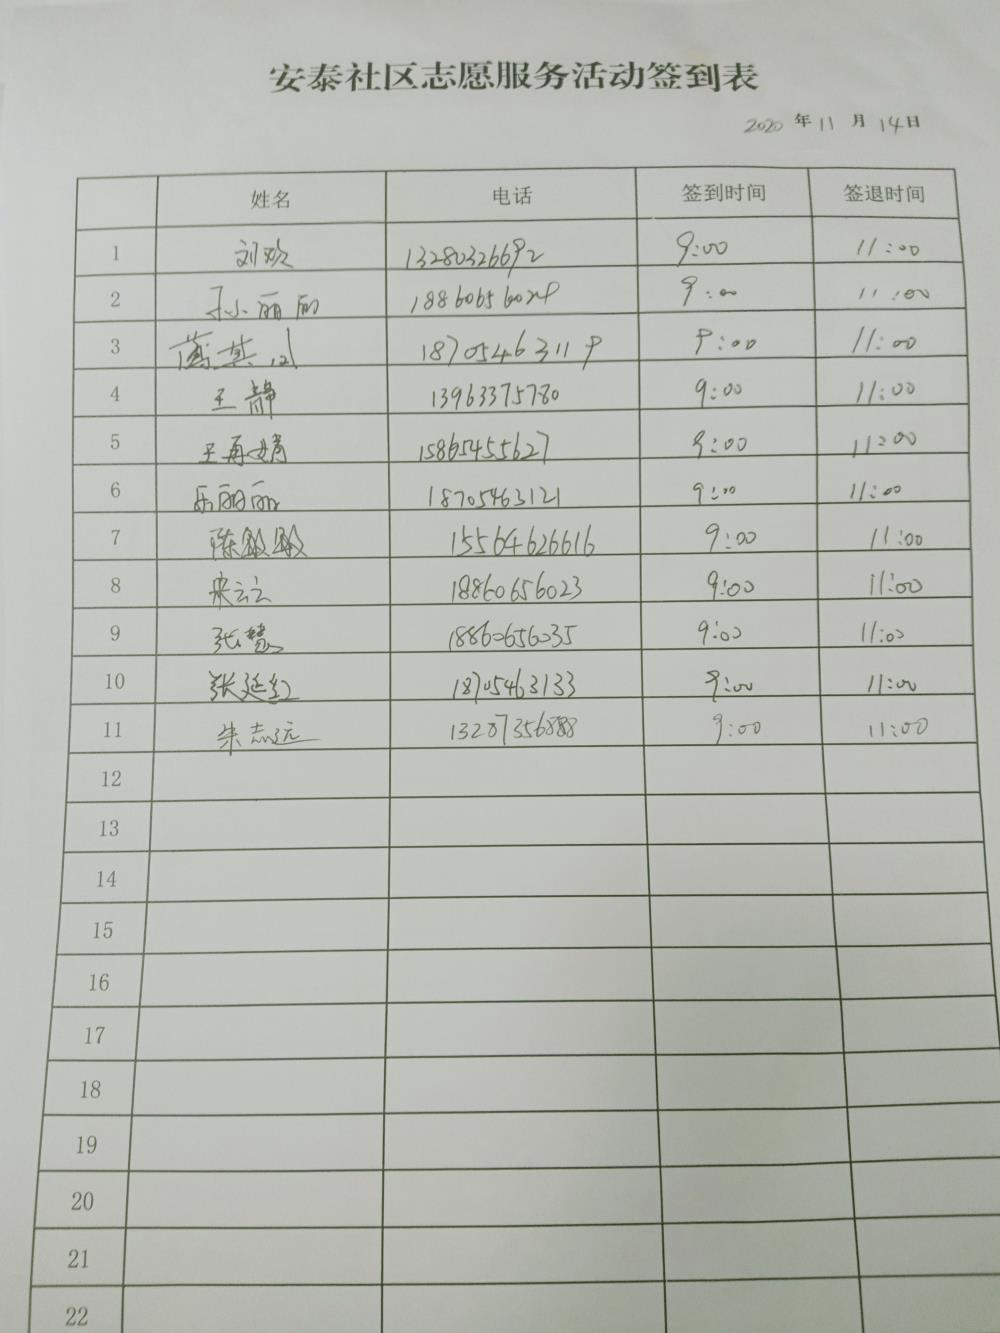 安泰社区志愿服务活动签到表
2020 年 11 月 14 日
姓名 电话 签到时间 签退时间
1 刘欢 13280326692 9:00 11:00
2 孙丽丽 18860656029 9:00 11:00
3 18705463119 9:00 11:00
4 王静 13963375780 9:00 11:00
5 王再娟 15865455627 9:00 11:00
6 乐丽丽 18705463121 9:00 11:00
7 陈敏敏 15564626616 9:00 11:00
8 宋云云 18860656023 9:00 11:00
9 张慧 18860656035 9:00 11:00
10 张延红 18705463133 9:00 11:00
11 朱志远 13287356888 9:00 11:00
12
13
14
15
16
17
18
19
20
21
22